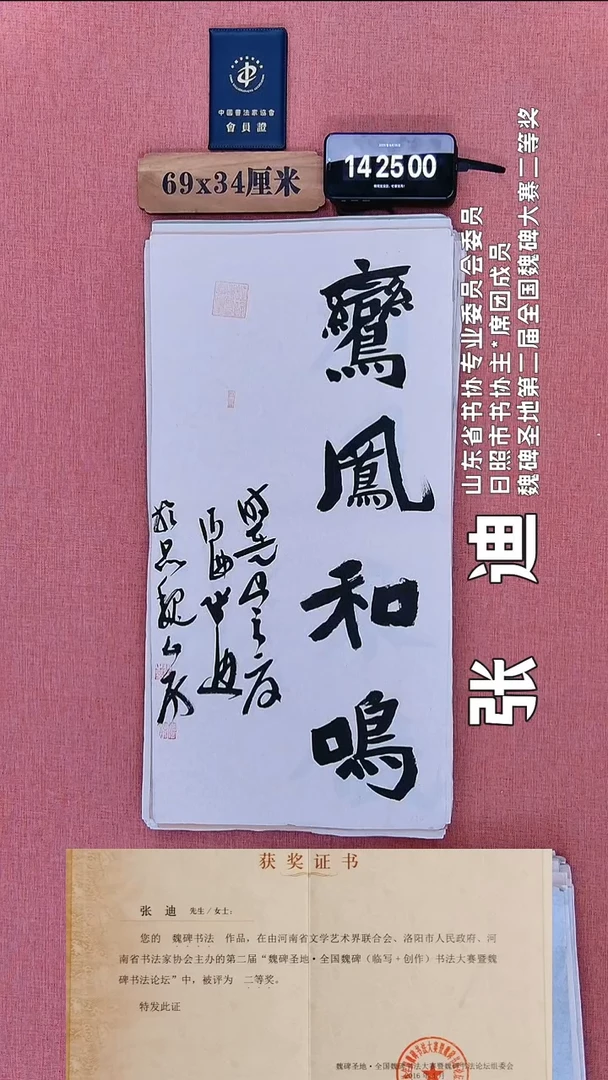 中國書法家協會
會員證
69x34厘米
14 25 00
鸞鳳和鳴
山东省书协专业委员会委员
日照市书协主*席团成员
魏碑圣地第二届全国魏碑大赛二等奖
张 迪
获奖证书
张 迪 先生/女士：
您的 魏碑书法 作品，在由河南省文学艺术界联合会、洛阳市人民政府、河
南省书法家协会主办的第二届“魏碑圣地·全国魏碑（临写+创作）书法大赛暨魏
碑书法论坛”中，被评为 二等奖。
特发此证
魏碑圣地·全国魏碑书法大赛暨魏碑书法论坛组委会